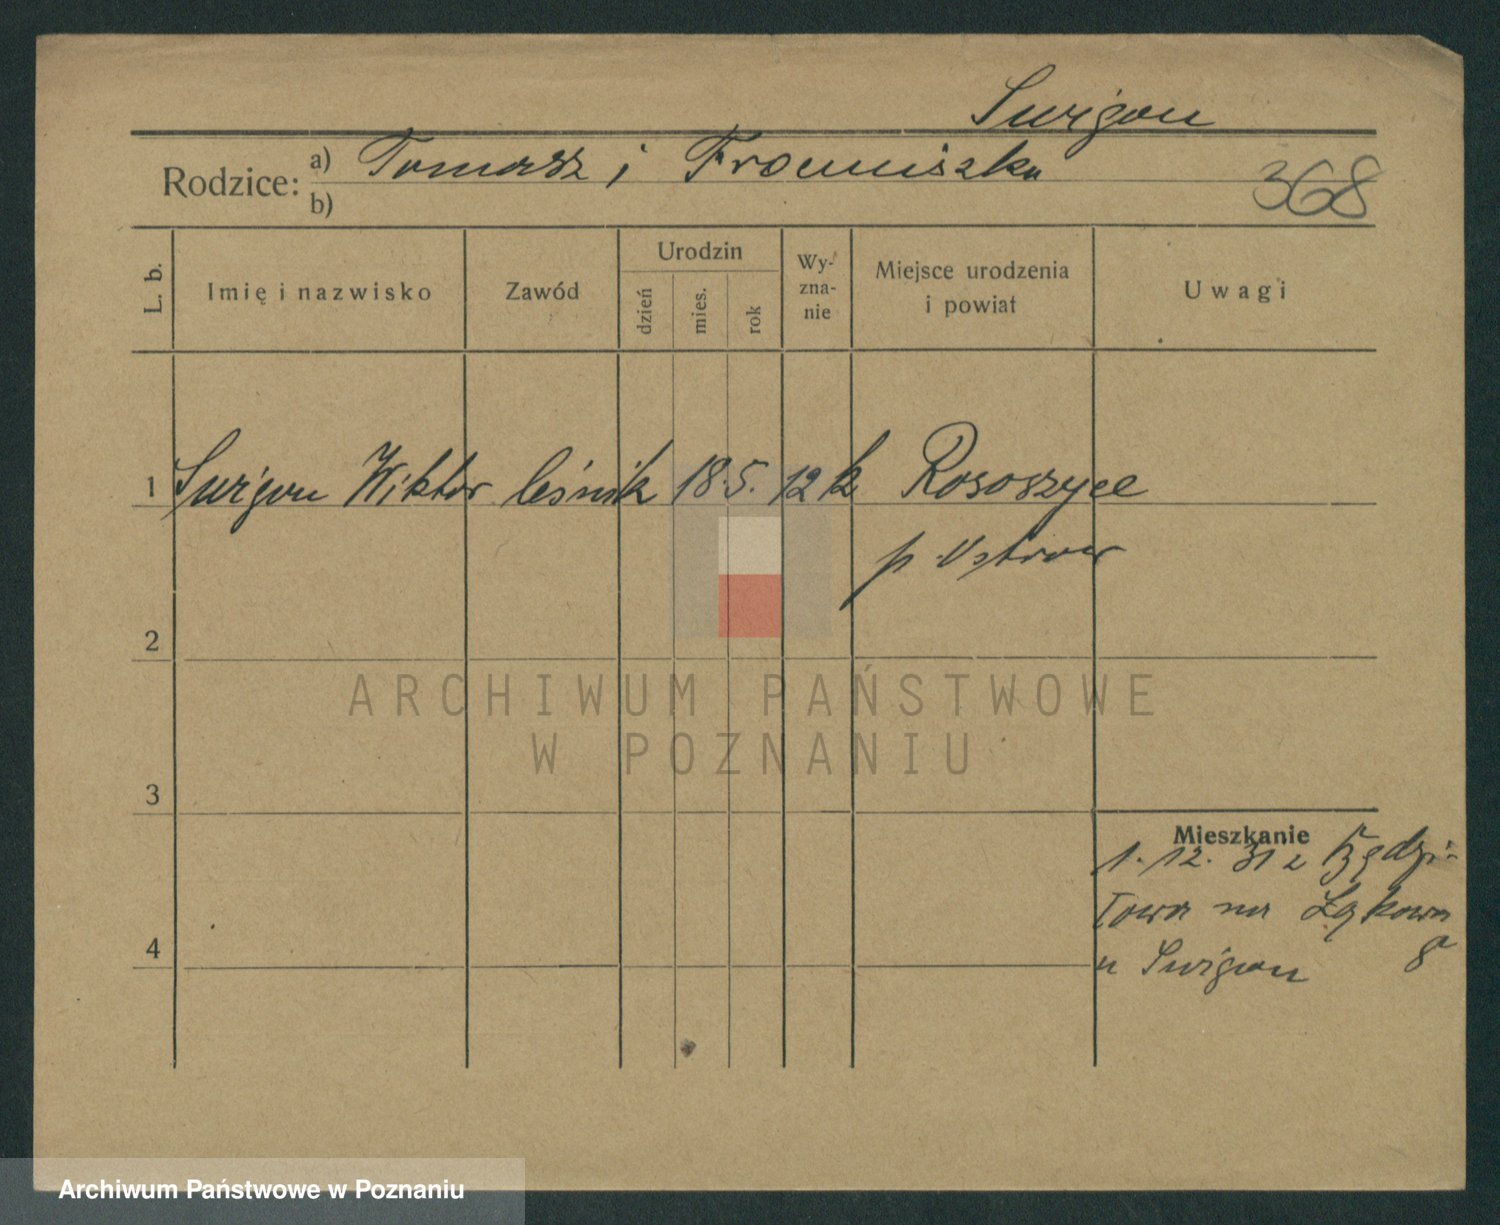 Surgon
Rodzice: a) Tomasz i Franciszka
368
b)
L. b.
Imię i nazwisko
Zawód
Urodzin
dzień
mies.
rok
Wy-
zna-
nie
Miejsce urodzenia
i powiat
Uwagi
1 Wiktor leśnik 18. 5. 12 k Rososzyce
p. Ostrow
2
ARCHIWUM PAŃSTWOWE
W POZNANIU
3
Mieszkanie
1. 12. 31 z
na Łąkowa
8
4
u
Archiwum Państwowe w Poznaniu